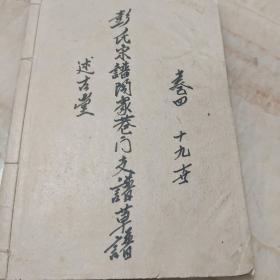 卷四 十九世
彭氏宗譜陶家巷门支譜草譜
述古堂